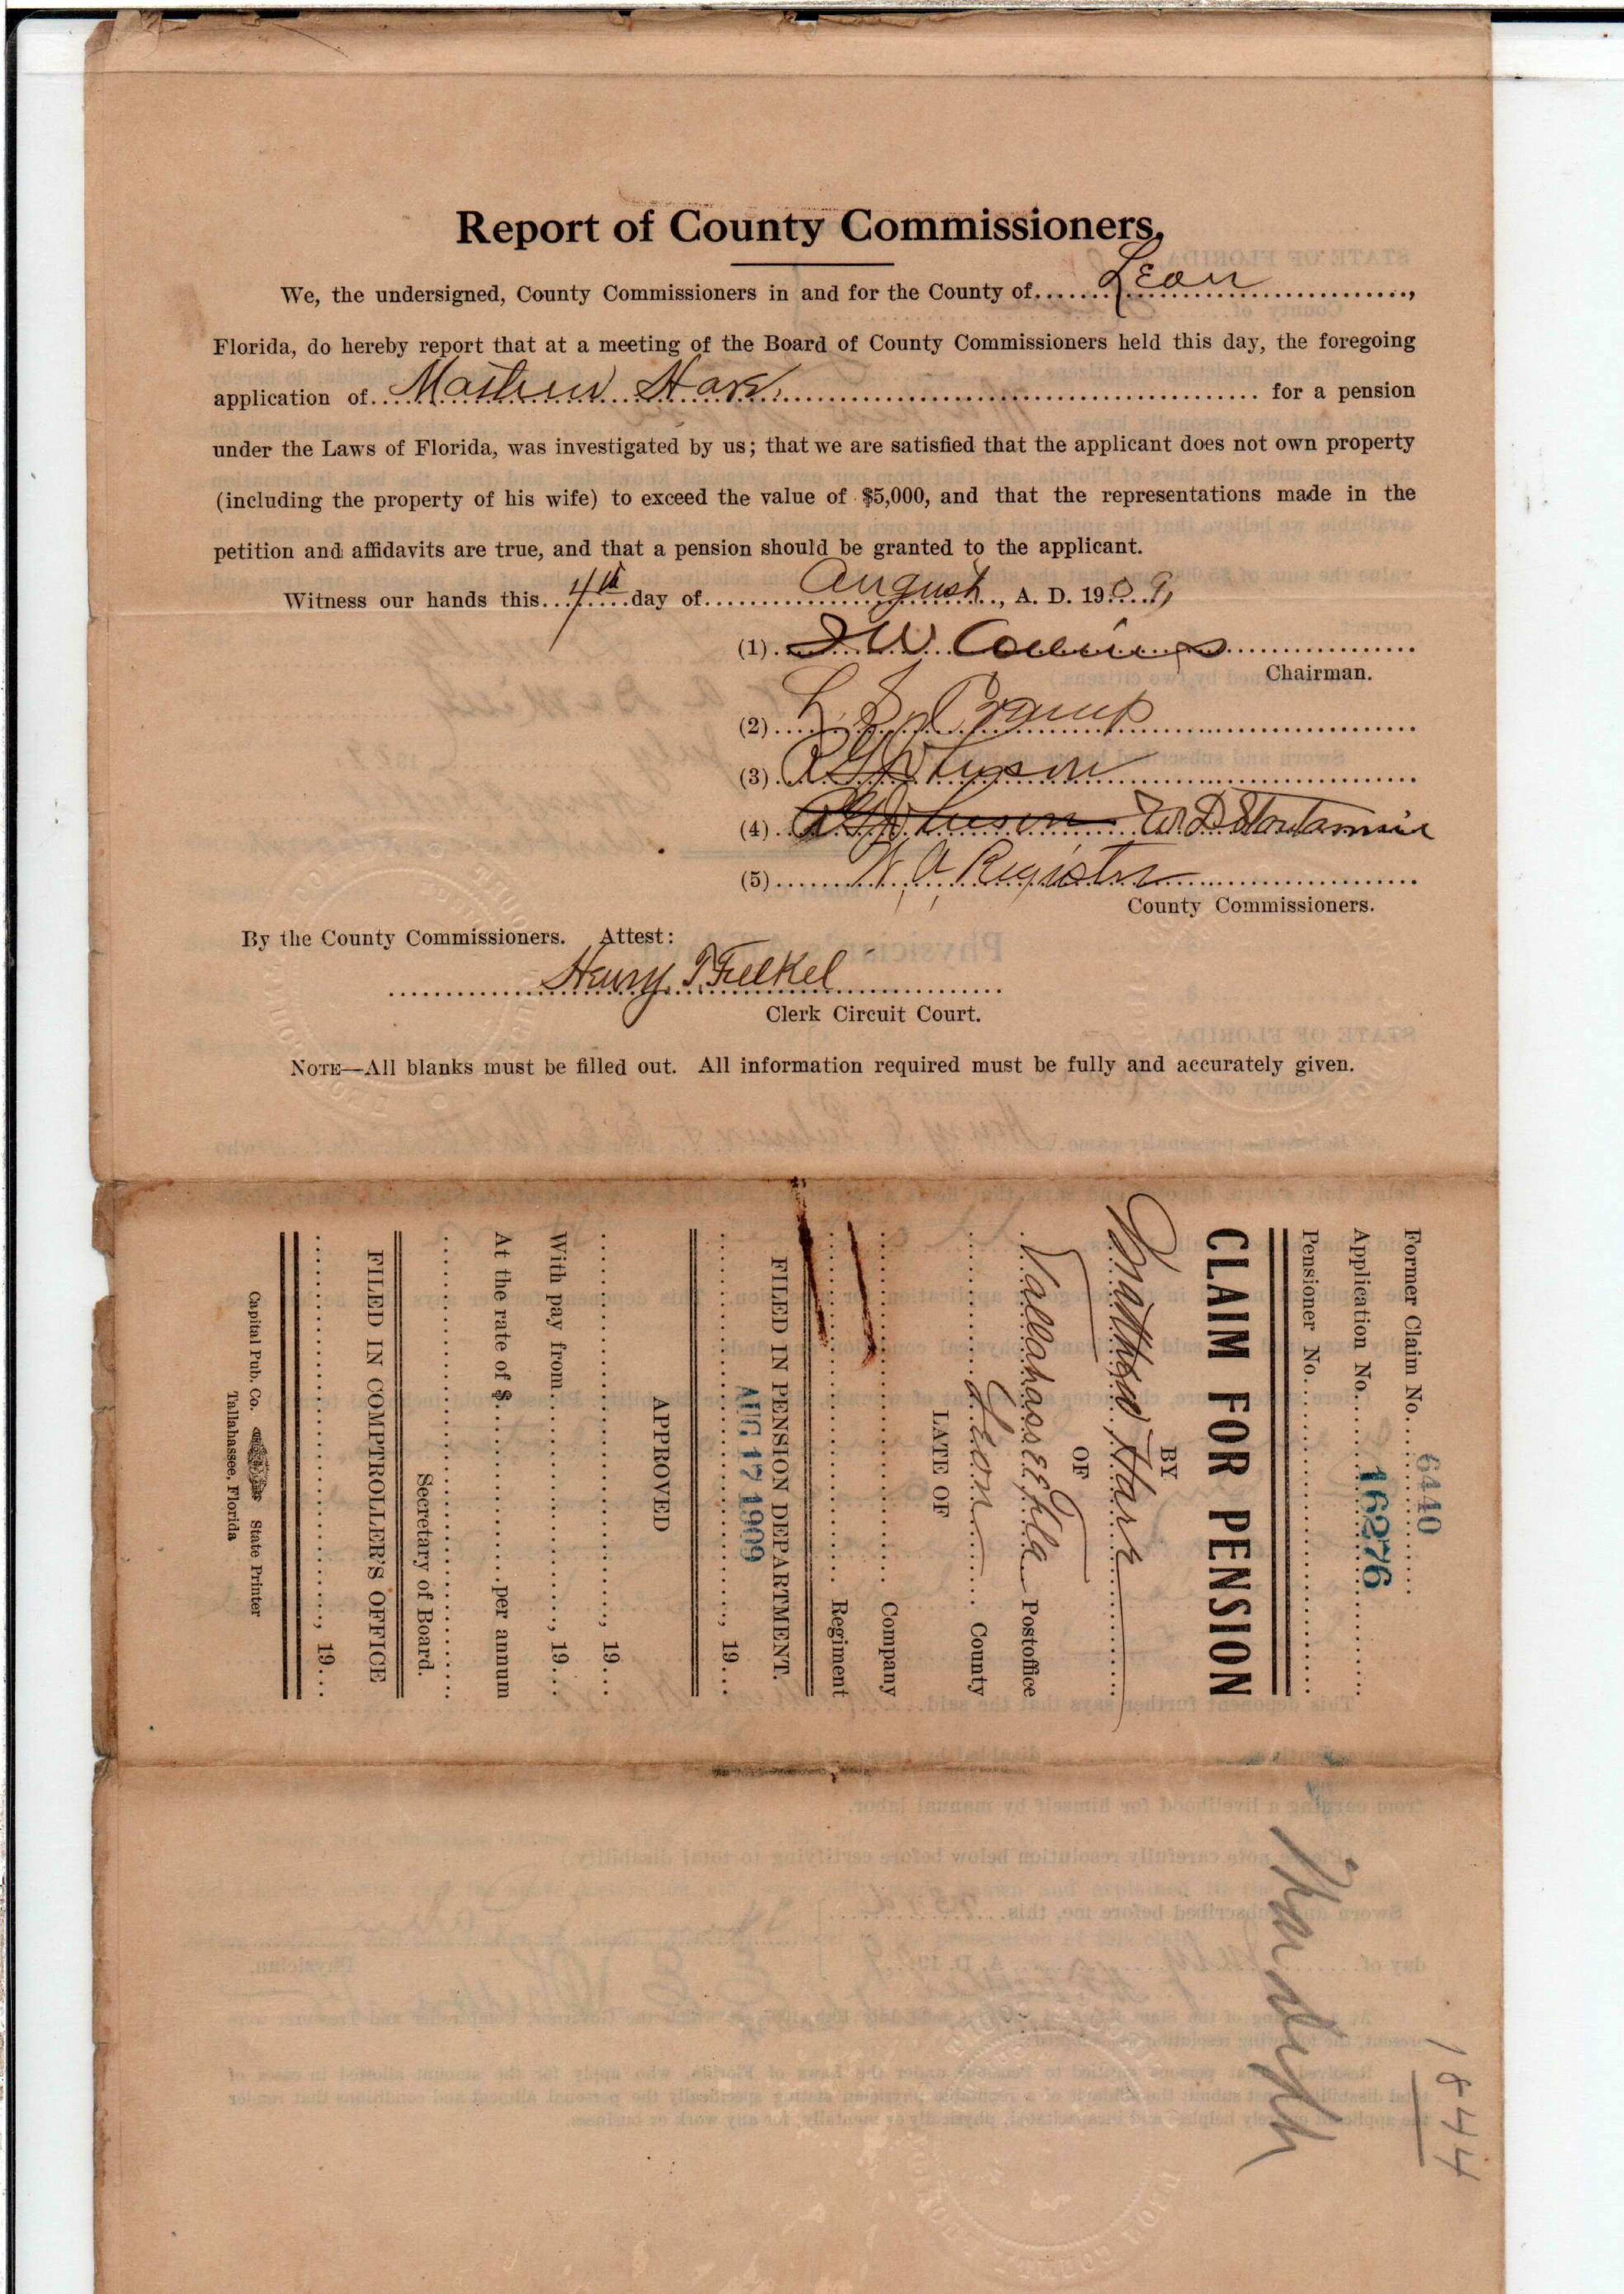 Report of County Commissioners.
We, the undersigned, County Commissioners in and for the County of Leon,
Florida, do hereby report that at a meeting of the Board of County Commissioners held this day, the foregoing
application of Mathew Hare for a pension
under the Laws of Florida, was investigated by us; that we are satisfied that the applicant does not own property
(including the property of his wife) to exceed the value of $5,000, and that the representations made in the
petition and affidavits are true, and that a pension should be granted to the applicant.
Witness our hands this 4th day of August, A. D. 1909,
(1) Collins
Chairman.
(2) L. S.
(3) R G Johnson
(4) R G Johnson W. D Stoutamire
(5) W. A. Register
County Commissioners.
By the County Commissioners. Attest:
Henry T. Felkel
Clerk Circuit Court.
NOTE—All blanks must be filled out. All information required must be fully and accurately given.
Former Claim No. 6440
Application No. 16276
Pensioner No.
CLAIM FOR PENSION
BY
Matthew Hare
OF
Tallahassee Fla Postoffice
Leon County
LATE OF
Company
Regiment
FILED IN PENSION DEPARTMENT.
AUG 17 1909 , 19
APPROVED
, 19
With pay from , 19
At the rate of $ per annum
Secretary of Board.
FILED IN COMPTROLLER'S OFFICE
, 19
Capital Pub. Co. State Printer
Tallahassee, Florida
1844